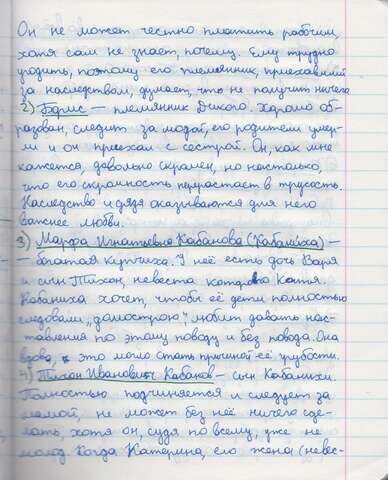 Он не может честно платить рабочим,
хотя сам не знает, почему. Ему трудно
угодить, поэтому его племянник, приехавший
за наследством, думает, что не получит ничего
2) Борис — племянник Дикого. Хорошо об-
разован, следит за модой, его родители умер-
ли и он приехал с сестрой. Он, как мне
кажется, довольно скромен, но настолько,
что его скромность перерастает в трусость.
Наследство и дядя оказываются для него
важнее любви.
3) Марфа Игнатьевна Кабанова (Кабаниха) —
– богатая купчиха. У неё есть дочь Варя
и сын Тихон, невеста которого Катя.
Кабаниха хочет, чтобы её дети полностью
следовали „домострою", любит давать нас-
тавления по этому поводу и без повода. Она
вдова, и это могло стать причиной её грубости.
4) Тихон Иванович Кабанов – сын Кабанихи.
Полностью подчиняется и следует за
мамой, не может без неё ничего сде-
лать, хотя он, судя по всему, уже не
молод. Когда Катерина, его жена (невес-